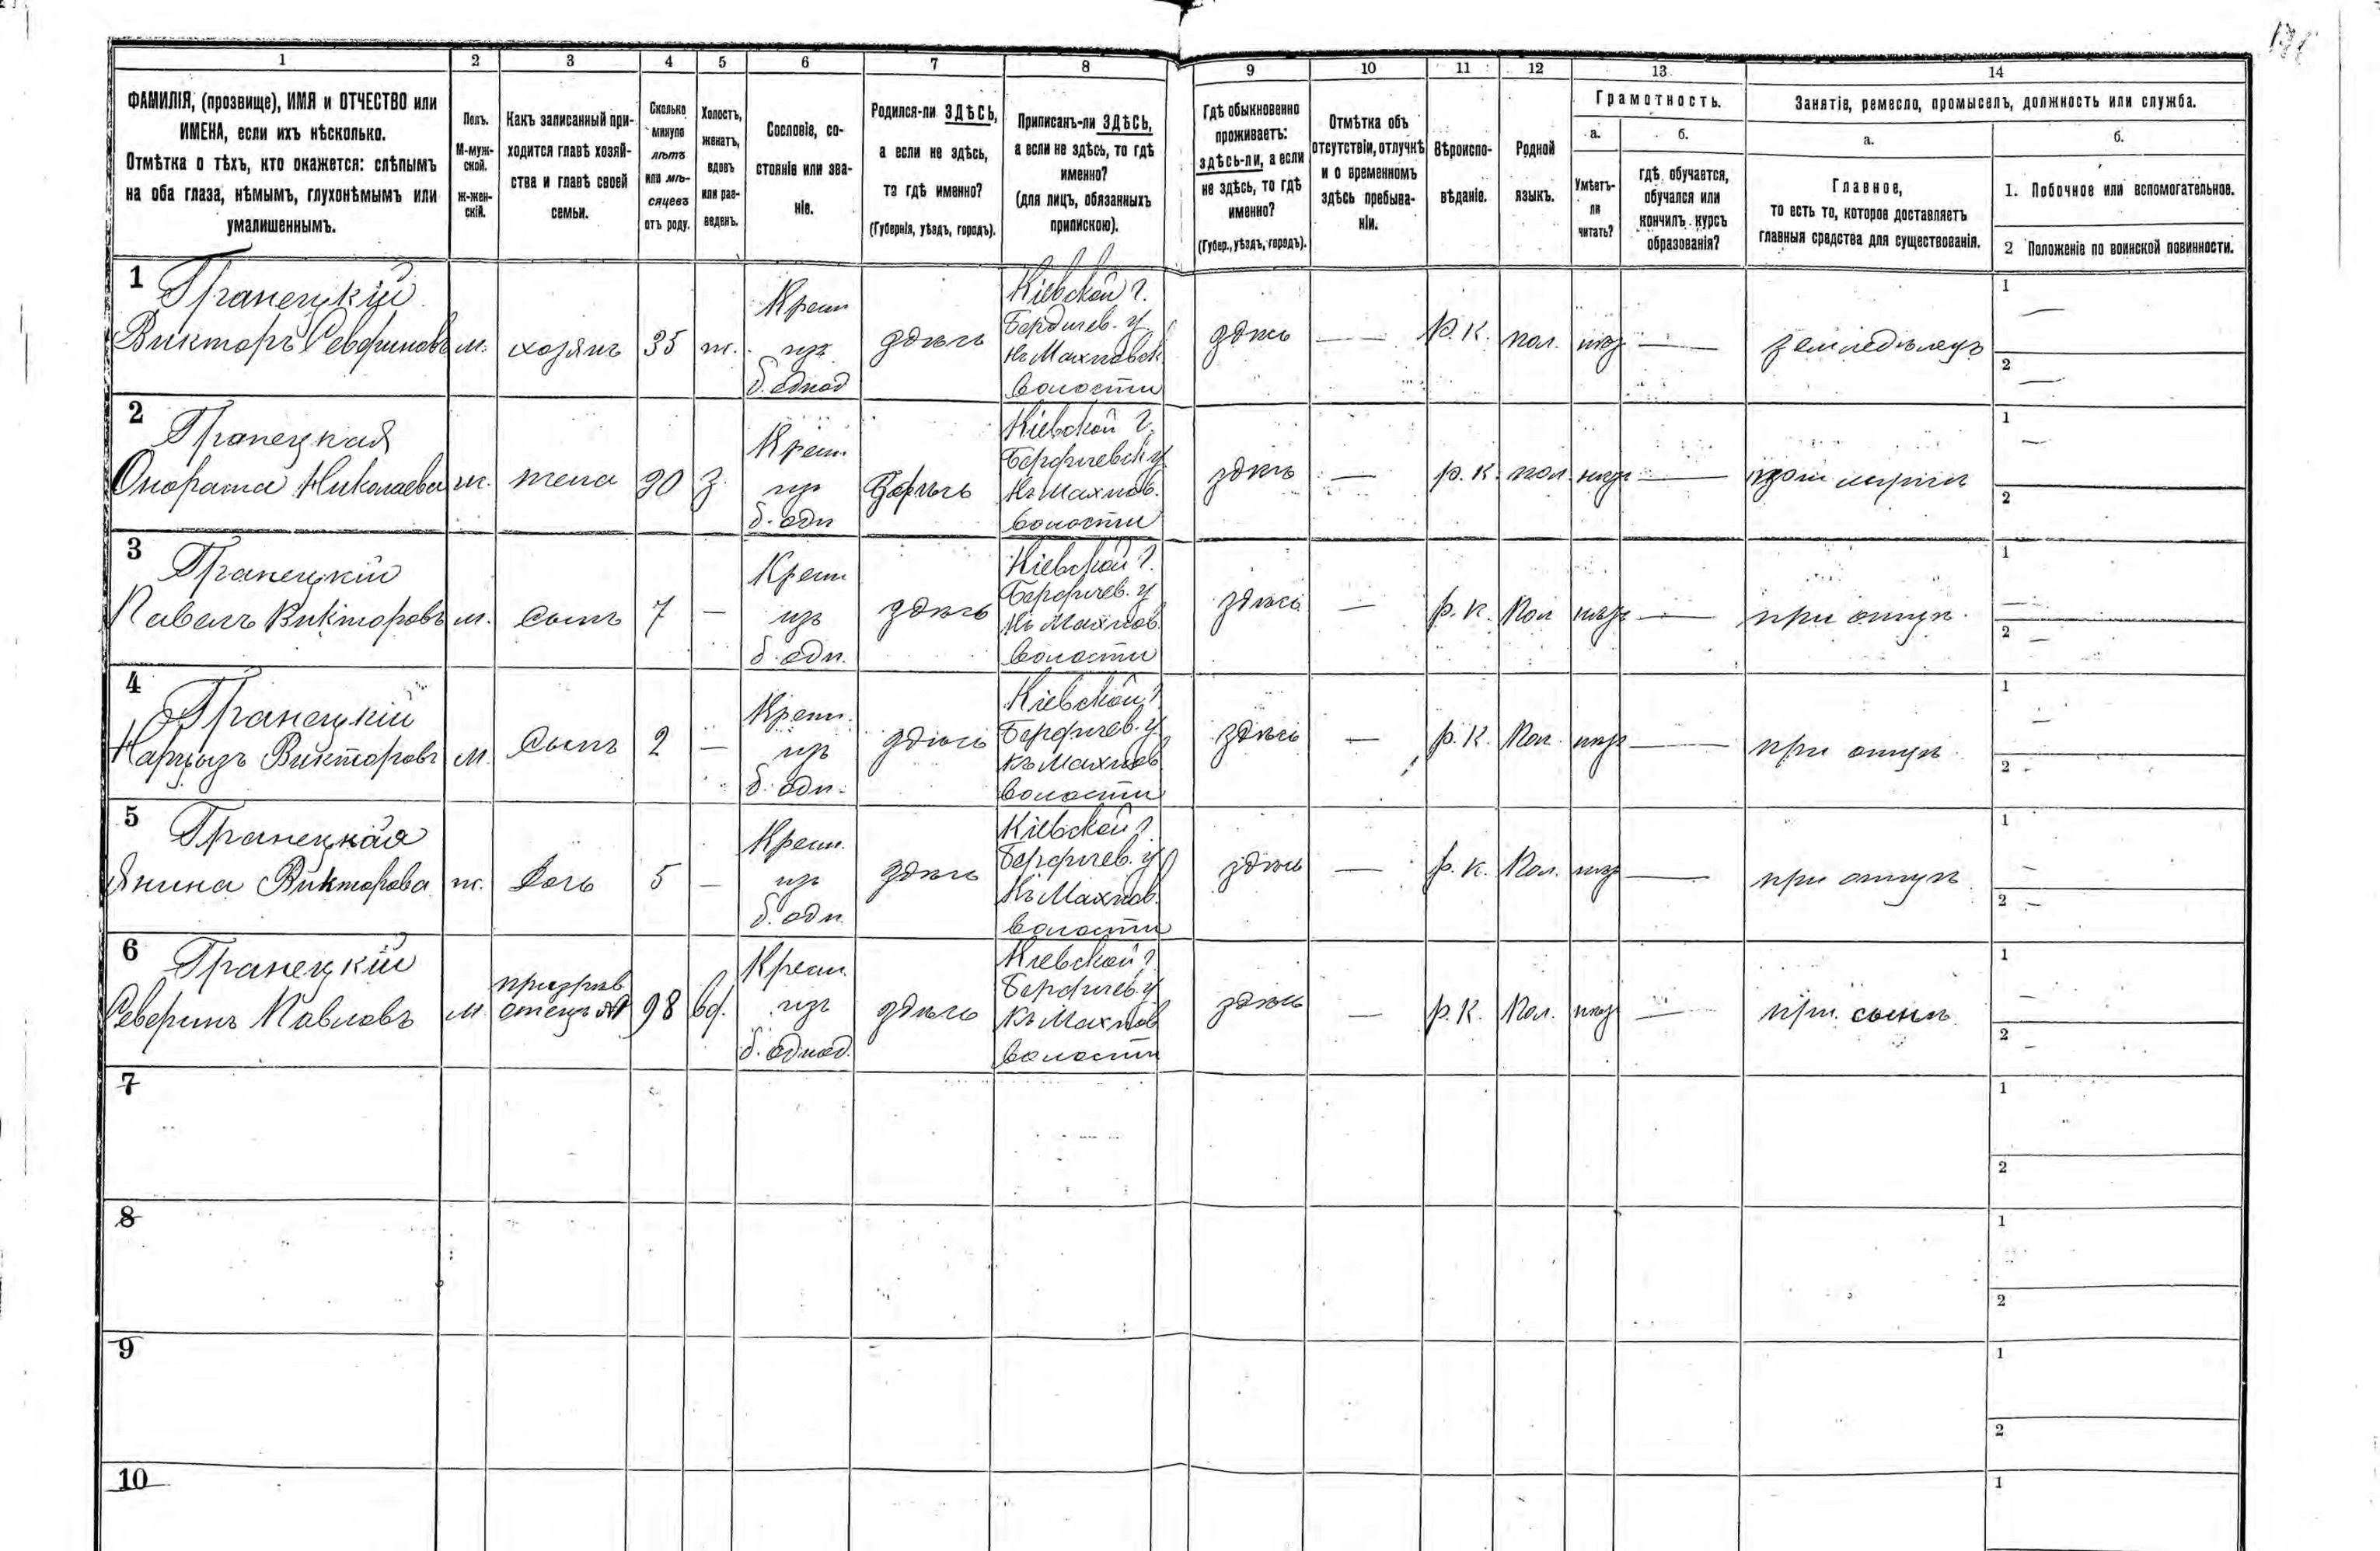 1 2 3 4 5 6 7 8 9 10 11 12 13 14
ФАМИЛІЯ, (прозвище), ИМЯ и ОТЧЕСТВО или
ИМЕНА, если ихъ нѣсколько.
Отмѣтка о тѣхъ, кто окажется: слѣпымъ
на оба глаза, нѣмымъ, глухонѣмымъ или
умалишеннымъ.
Полъ.
М-муж-
ской.
Ж-жен-
скій.
Какъ записанный при-
ходится главѣ хозяй-
ства и главѣ своей
семьи.
Сколько
минуло
лѣтъ
или мѣ-
сяцевъ
отъ роду.
Холостъ,
женатъ,
вдовъ
или раз-
веденъ.
Сословіе, со-
стояніе или зва-
ніе.
Родился-ли ЗДѢСЬ,
а если не здѣсь,
то гдѣ именно?
(Губернія, уѣздъ, городъ).
Приписанъ-ли ЗДѢСЬ,
а если не здѣсь, то гдѣ
именно?
(для лицъ, обязанныхъ
припискою).
Гдѣ обыкновенно
проживаетъ:
здѣсь-ли, а если
не здѣсь, то гдѣ
именно?
(Губер., уѣздъ, городъ).
Отмѣтка объ
отсутствіи, отлучкѣ
и о временномъ
здѣсь пребыва-
ніи.
Вѣроиспо-
вѣданіе.
Родной
языкъ.
Грамотность.
а.
Умѣетъ-
ли
читать?
б.
гдѣ обучается,
обучался или
кончилъ курсъ
образованія?
Занятіе, ремесло, промыселъ, должность или служба.
а.
Главное,
то есть то, которое доставляетъ
главныя средства для существованія.
б.
1. Побочное или вспомогательное.
2 Положеніе по воинской повинности.
1
Гранецкій
Викторъ Севериновъ
м.
хозяинъ
35
ж.
Крест
изъ
б. однод
здѣсь
Кіевской г.
Бердичев. у
къ Махновск.
волости
здѣсь
—
Р. К.
пол.
нѣтъ
—
земледѣлецъ
1
—
2
—
2
Гранецкая
Онората Николаева
ж.
жена
30
з.
Крест
изъ
б. одн
здѣсь
Кіевской г.
Бердичевск у
къ Махнов.
волости
здѣсь
—
р. К.
пол.
нѣтъ
—
при мужѣ
1
—
2
3
Гранецкій
Павелъ Викторовъ
м.
сынъ
7
—
Крест
изъ
б. одн.
здѣсь
Кіевской г.
Бердичев. у
къ Махнов.
волости
здѣсь
—
р. К.
Пол
нѣтъ
—
при отцѣ.
1
—
2
—
4
Гранецкій
Нарцызъ Викторовъ
м
Сынъ
2
—
Крест.
изъ
б. одн.
здѣсь
Кіевской г.
Бердичев. у
къ Махнов
волости
здѣсь
—
р. К.
Пол.
нѣтъ
—
при отцѣ
1
—
2
5
Гранецкая
Янина Викторова
ж.
Дочь
5
—
Крест.
изъ
б. одн.
здѣсь
Кіевской г.
Бердичев. у
къ Махнов.
волости
здѣсь
—
р. К.
Пол.
нѣтъ
—
при отцѣ
1
—
2
—
6
Гранецкій
Северинъ Павловъ
м
отецъ
98
вд.
Крест
изъ
б. однод.
здѣсь
Кіевской г.
Бердичев. у
къ Махнов
волости
здѣсь
—
р. К.
Пол.
нѣтъ
—
при сынѣ
1
—
2
—
7
1
2
8
1
2
9
1
2
10
1